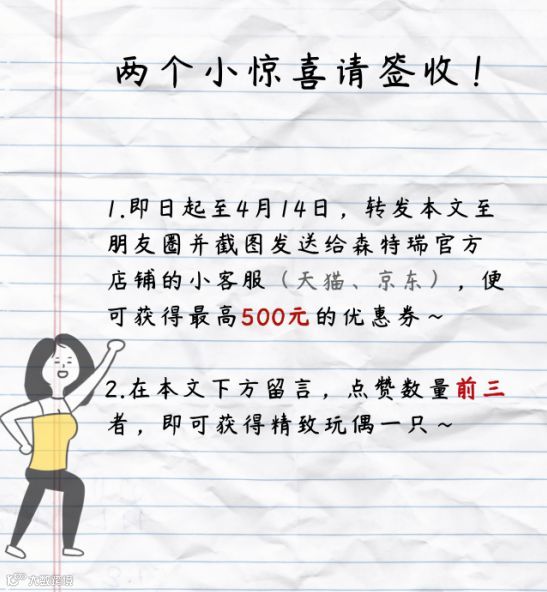 两个小惊喜请签收！
1.即日起至4月14日，转发本文至
朋友圈并截图发送给森特瑞官方
店铺的小客服（天猫、京东），便
可获得最高500元的优惠券～
2.在本文下方留言，点赞数量前三
者，即可获得精致玩偶一只～
大数跨境